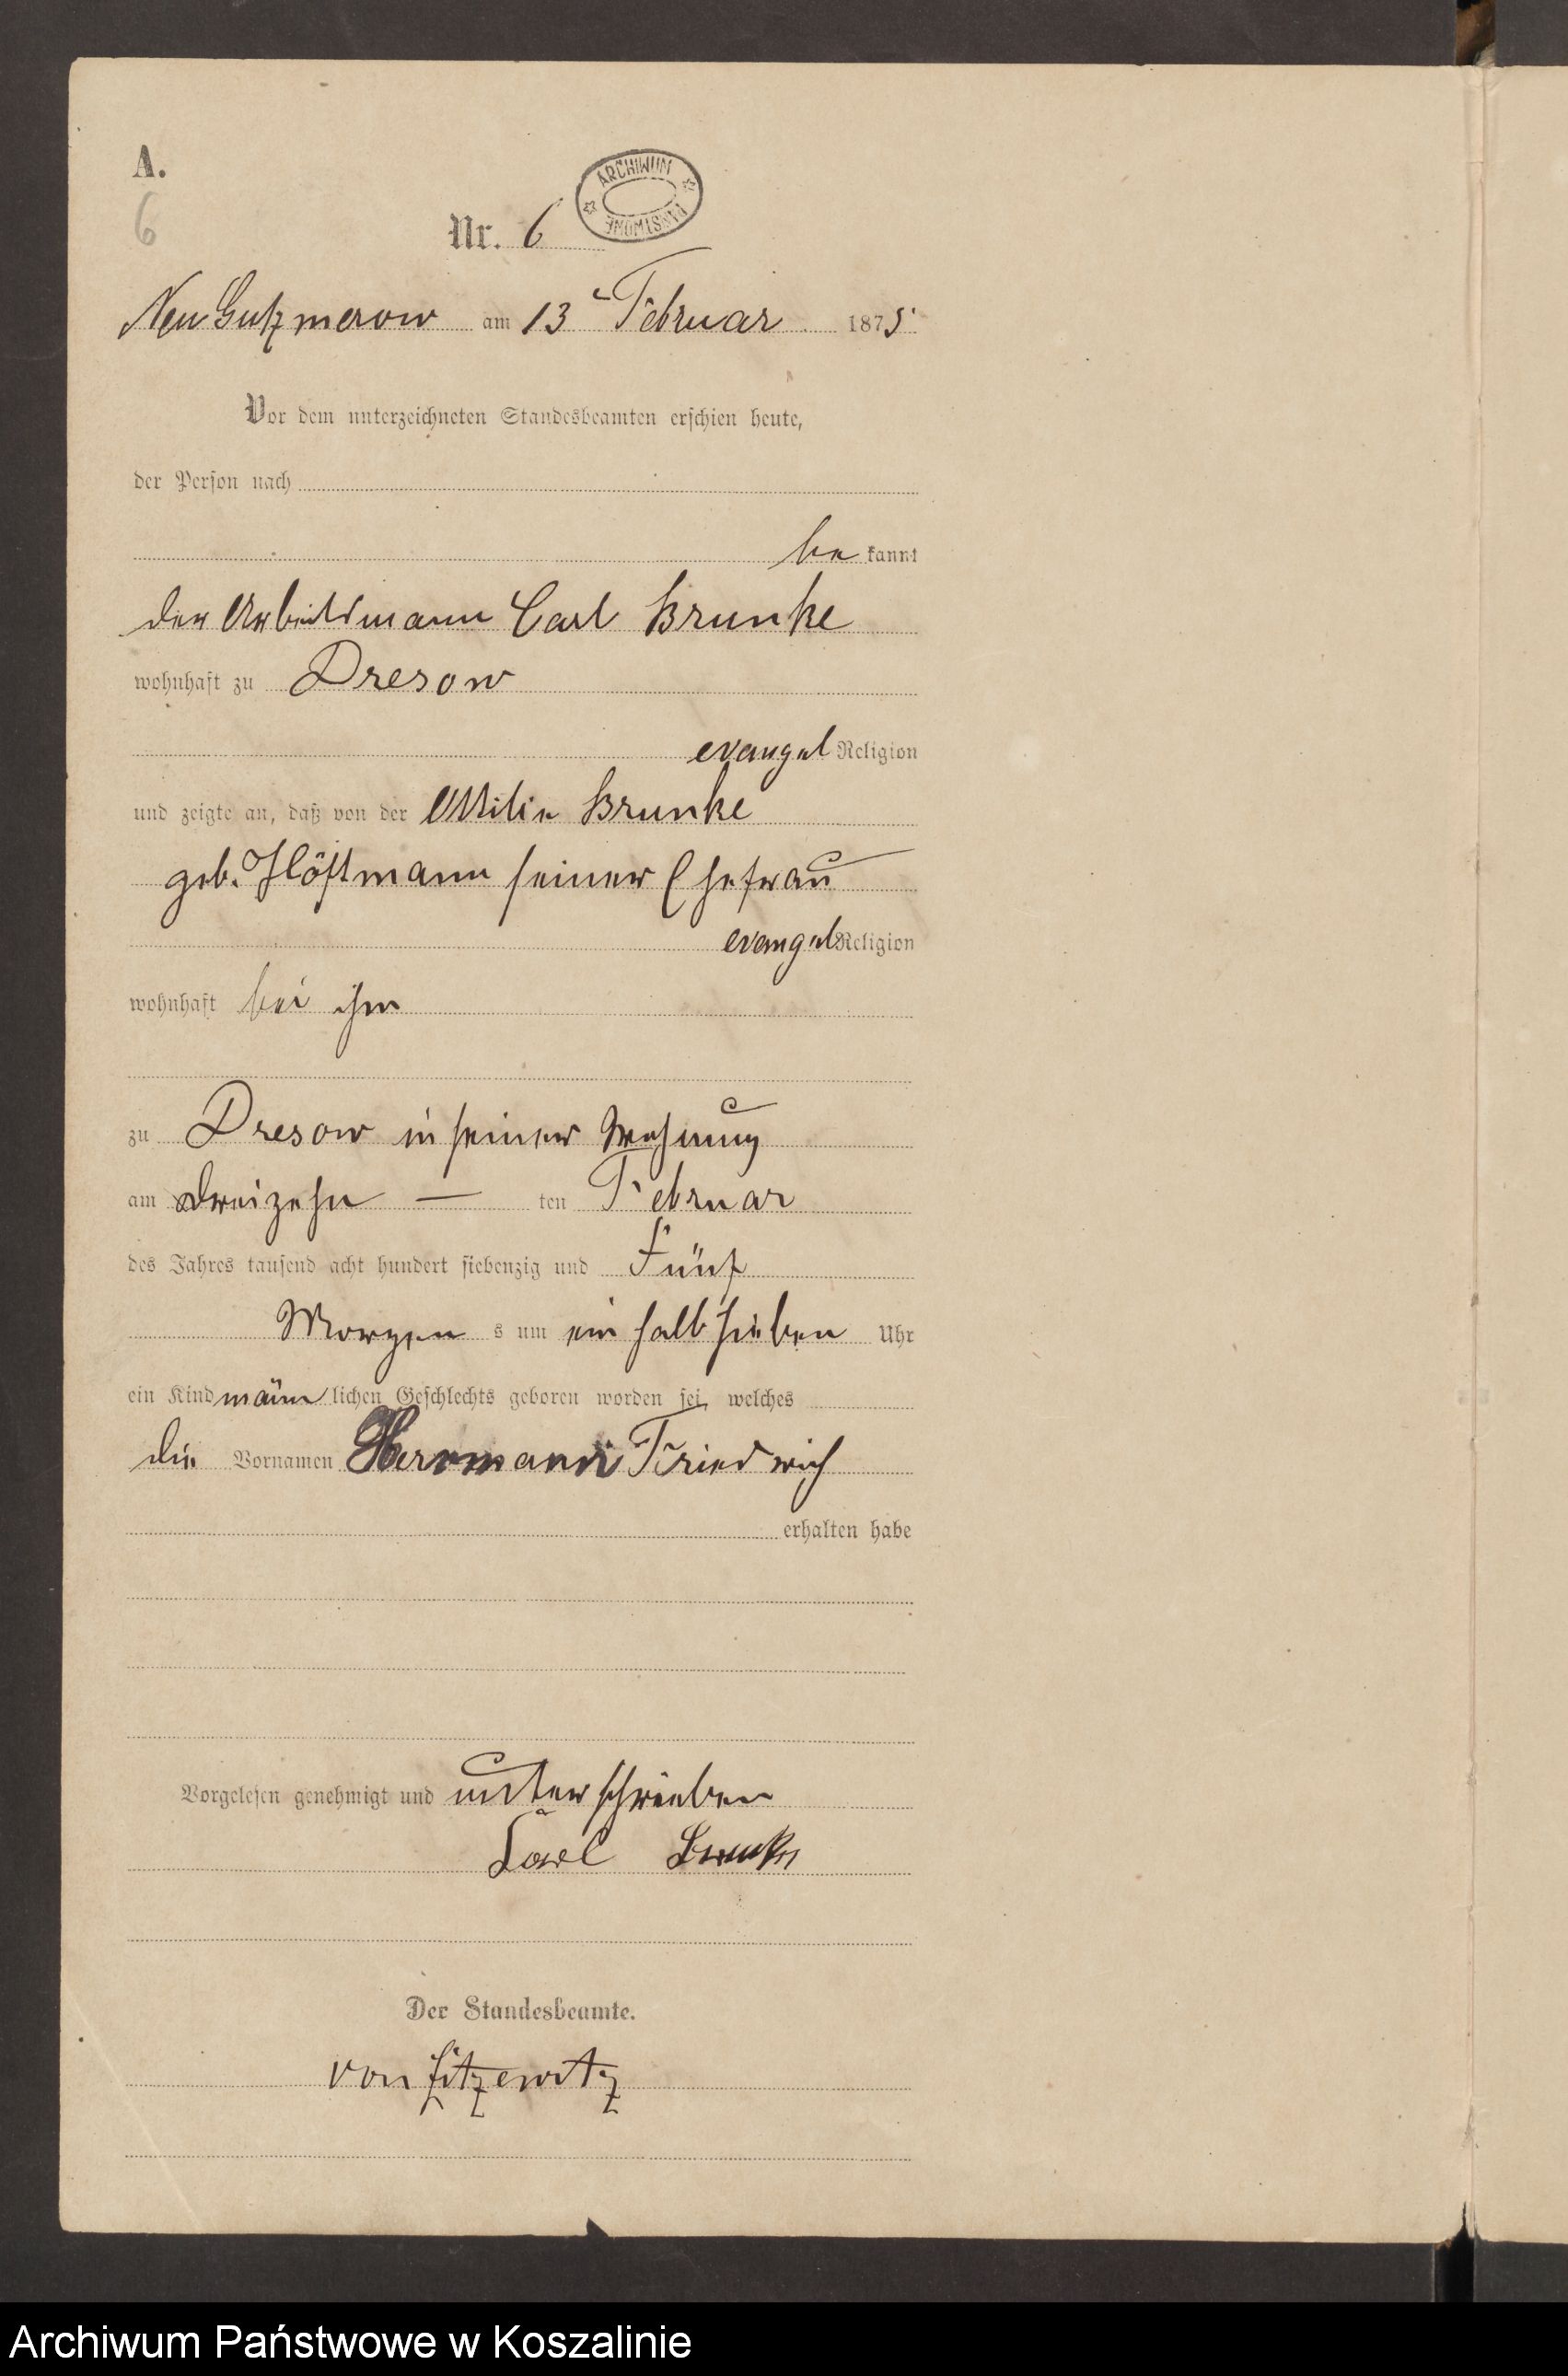 A.
6
ARCHIWUM PAŃSTWOWE
Nr. 6
Neu Gutzmerow am 13 Februar 1875
Vor dem unterzeichneten Standesbeamten erschien heute,
der Person nach
be kannt
der Arbeitsmann Carl Brunke
wohnhaft zu Dresow
evangel Religion
und zeigte an, daß von der Ottilie Brunke
geb. seiner Ehefrau
evangel Religion
wohnhaft bei ihm
zu Dresow in seiner Wohnung
am dreizehn — ten Februar
des Jahres tausend acht hundert siebenzig und Fünf
Morgen s um ein halb sieben Uhr
ein Kind männ lichen Geschlechts geboren worden sei, welches
die Vornamen Hermann Friedrich
erhalten habe
Vorgelesen genehmigt und unterschrieben
Karl Brunke
Der Standesbeamte.
von Zitzewitz
Archiwum Państwowe w Koszalinie